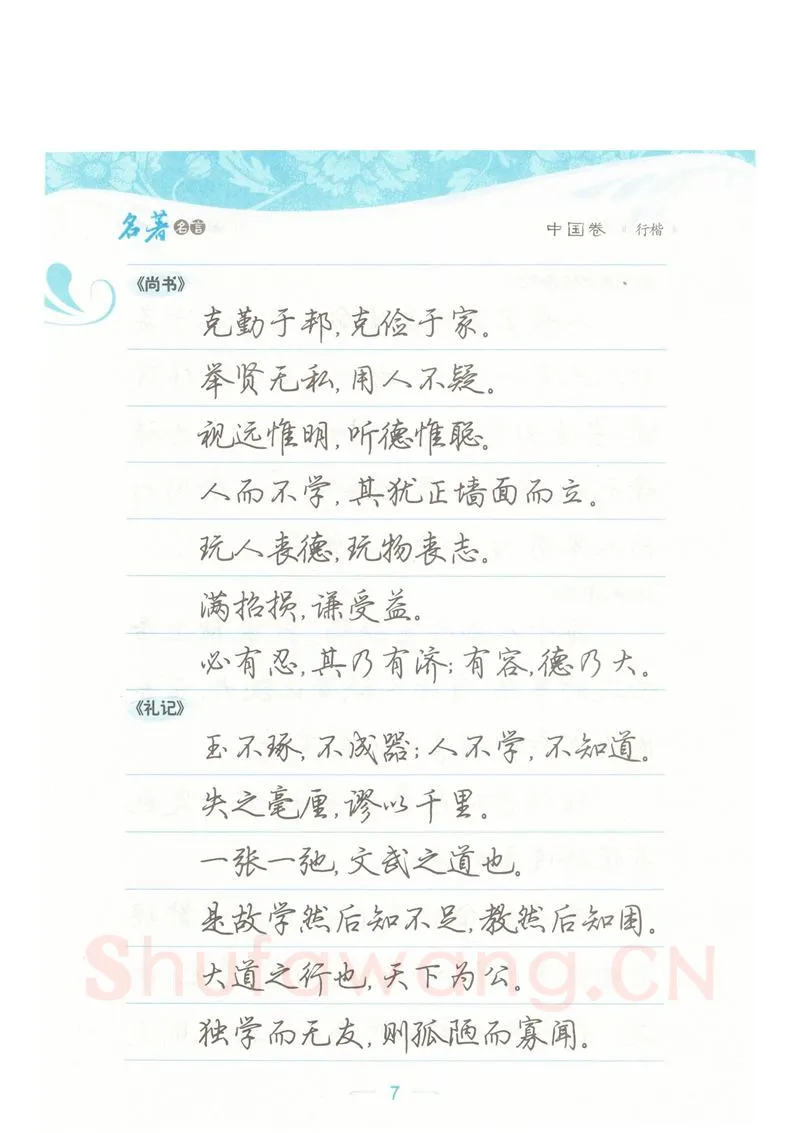 名著名言
中国卷 行楷
《尚书》
克勤于邦,克俭于家。
举贤无私,用人不疑。
视远惟明,听德惟聪。
人而不学,其犹正墙面而立。
玩人丧德,玩物丧志。
满招损,谦受益。
必有忍,其乃有济;有容,德乃大。
《礼记》
玉不琢,不成器;人不学,不知道。
失之毫厘,谬以千里。
一张一弛,文武之道也。
是故学然后知不足,教然后知困。
大道之行也,天下为公。
独学而无友,则孤陋而寡闻。
Shufawang.CN
7